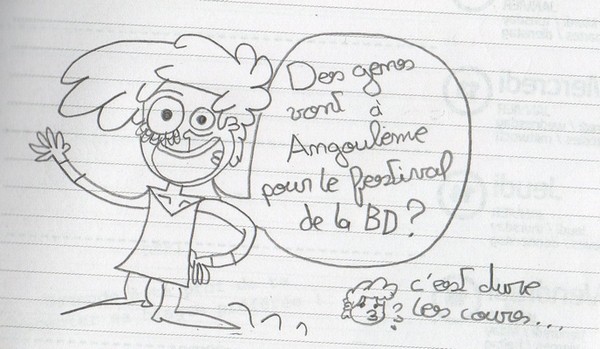 Des gens
vont à
Angoulème
pour le festival
de la BD ?
c'est dure
les cours...
Mercredi
Jeudi